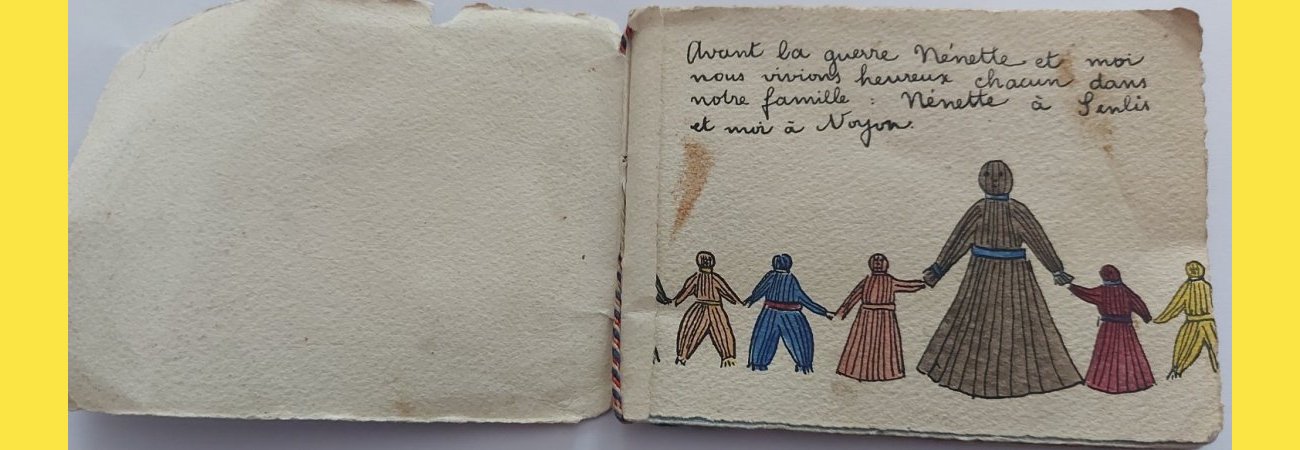 Avant la guerre Nénette et moi
nous vivions heureux chacun dans
notre famille : Nénette à Senlis
et moi à Noyon.